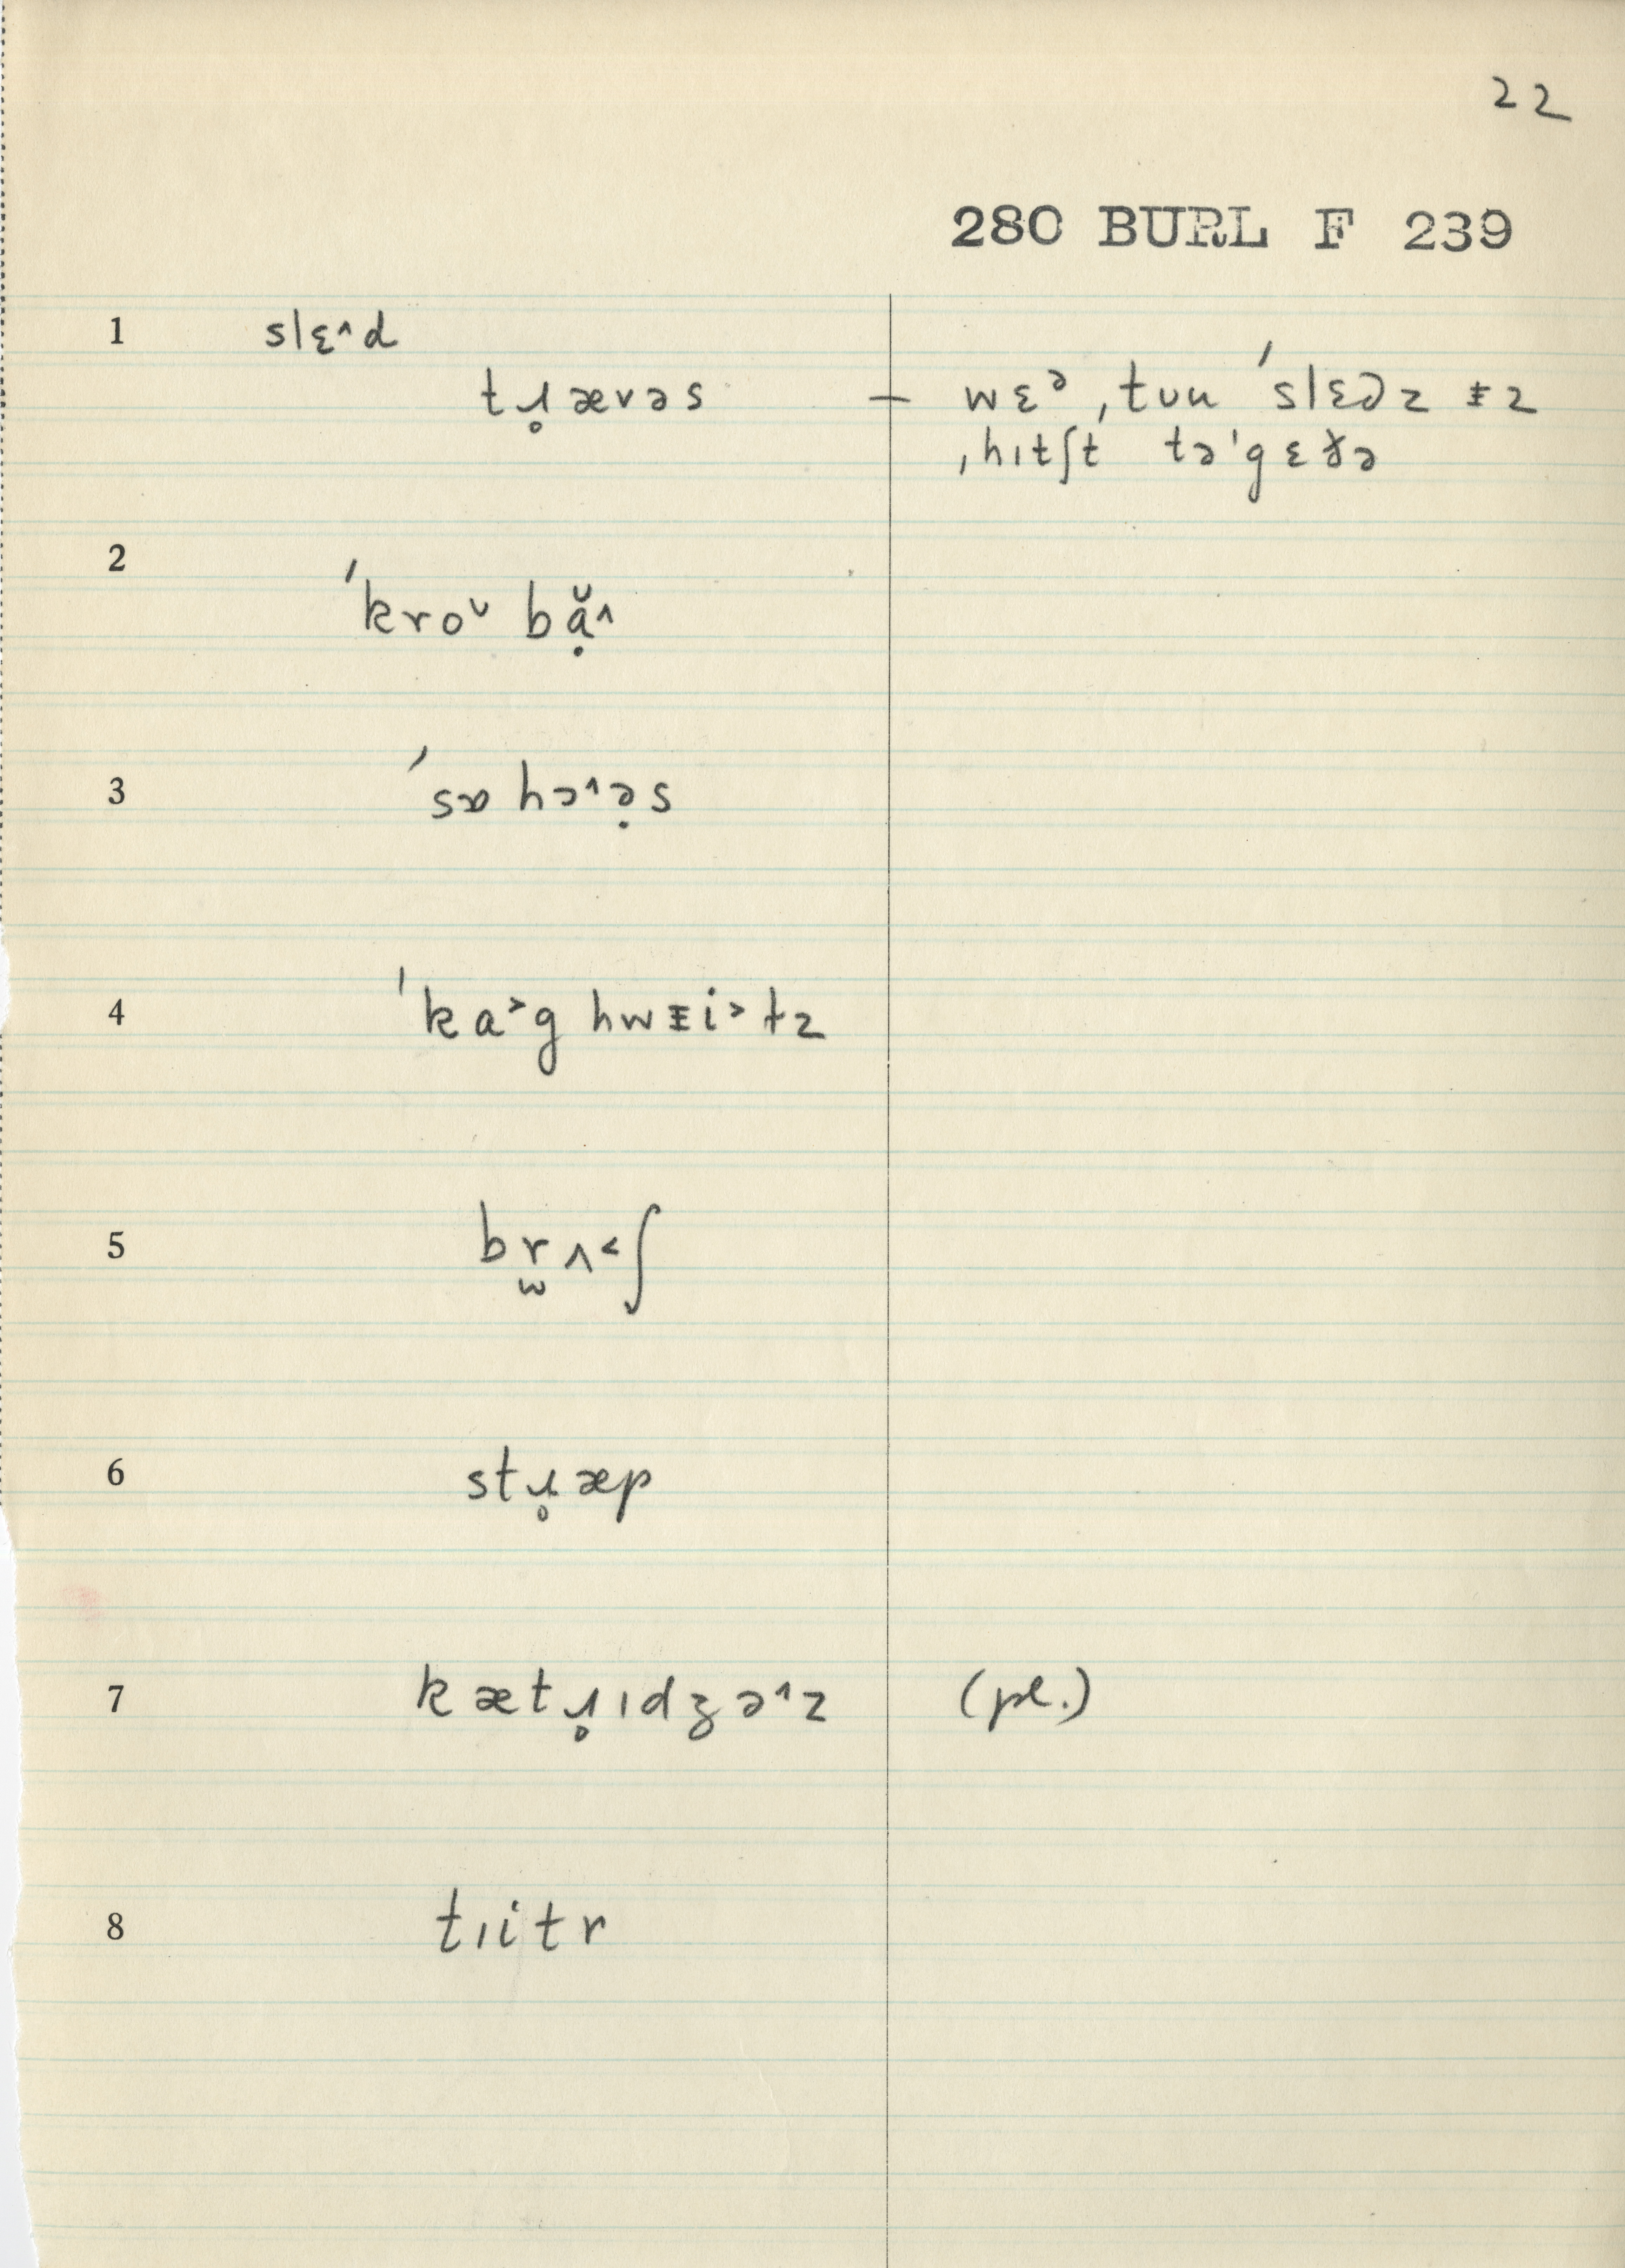 22
280 BURL F 239
1 slɛ˄d
tɹ̥ævəs — wɛᵊ ˌtuu ˈslɛdz ᵻz
ˌhɪtʃt təˈgɛðə
2 ˈkroᵘ bặ˄
3 ˈsɒ hɔ˄ə̣s
4 ˈka˃g hwᵻi˃tz
5 br̫ʌ˂ʃ
6 stɹ̥æp
7 kætɹ̥ɪdʒə˄z (pl.)
8 tɪitr